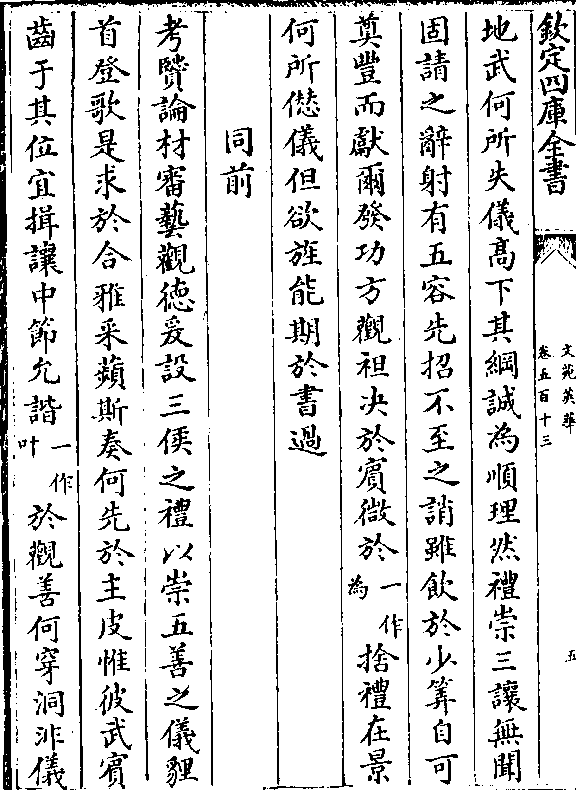 欽定四庫全書
文苑英華
卷五百十三
五
地武何所失儀高下其綱誠為順理然禮崇三讓無聞
固請之辭射有五容先招不至之誚雖飲於少筭自可
奠豐而獻爾發功方觀袒决於賓微於一作為捨禮在景
何所僽儀但欲旌能期於書過
同前
考賢論材審藝觀徳爰設三侯之禮以崇五善之儀貍
首登歌是求於合雅采蘋斯奏何先於主皮惟彼武賓
齒于其位宜揖讓中節允諧一作叶於觀善何穿洞非儀